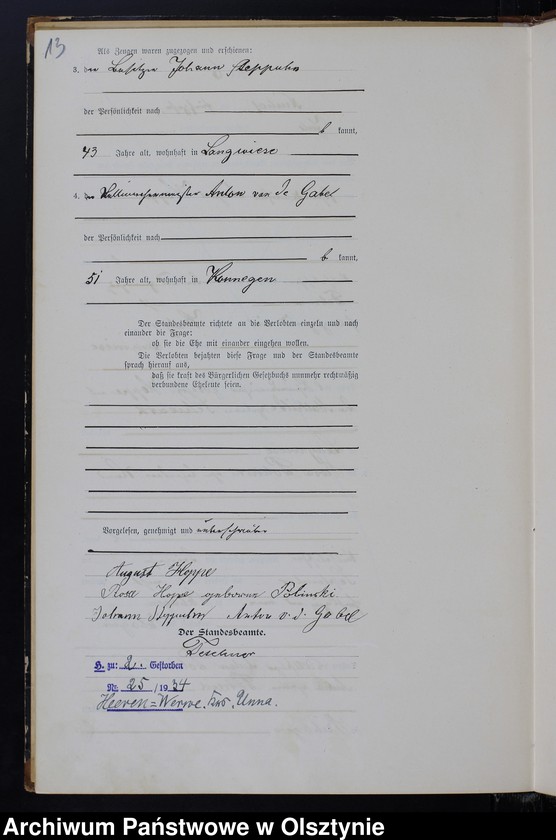 13
Als Zeugen waren zugezogen und erschienen:
3. der Besitzer Johann Steppuhn
der Persönlichkeit nach
b kannt,
43 Jahre alt, wohnhaft in Langwiese
4. der Anton van de Gabel
der Persönlichkeit nach
b kannt,
51 Jahre alt, wohnhaft in Konnegen
Der Standesbeamte richtete an die Verlobten einzeln und nach
einander die Frage:
ob sie die Ehe mit einander eingehen wollen.
Die Verlobten bejahten diese Frage und der Standesbeamte
sprach hierauf aus,
daß sie kraft des Bürgerlichen Gesetzbuchs nunmehr rechtmäßig
verbundene Eheleute seien.
Vorgelesen, genehmigt und unterschrieben
August Hoppe
Rosa Hoppe geborene Polinski
Johann Steppuhn Anton v. d. Gabel
Der Standesbeamte.
Teschner
H. zu: 2. Gestorben
Nr. 25 / 1934
Heeren=Werve. Krs. Unna.
Archiwum Państwowe w Olsztynie